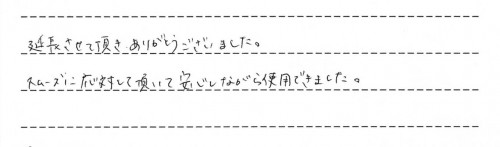 延長させて頂きありがとうございました。
スムーズに応対して頂いて安心しながら使用できました。